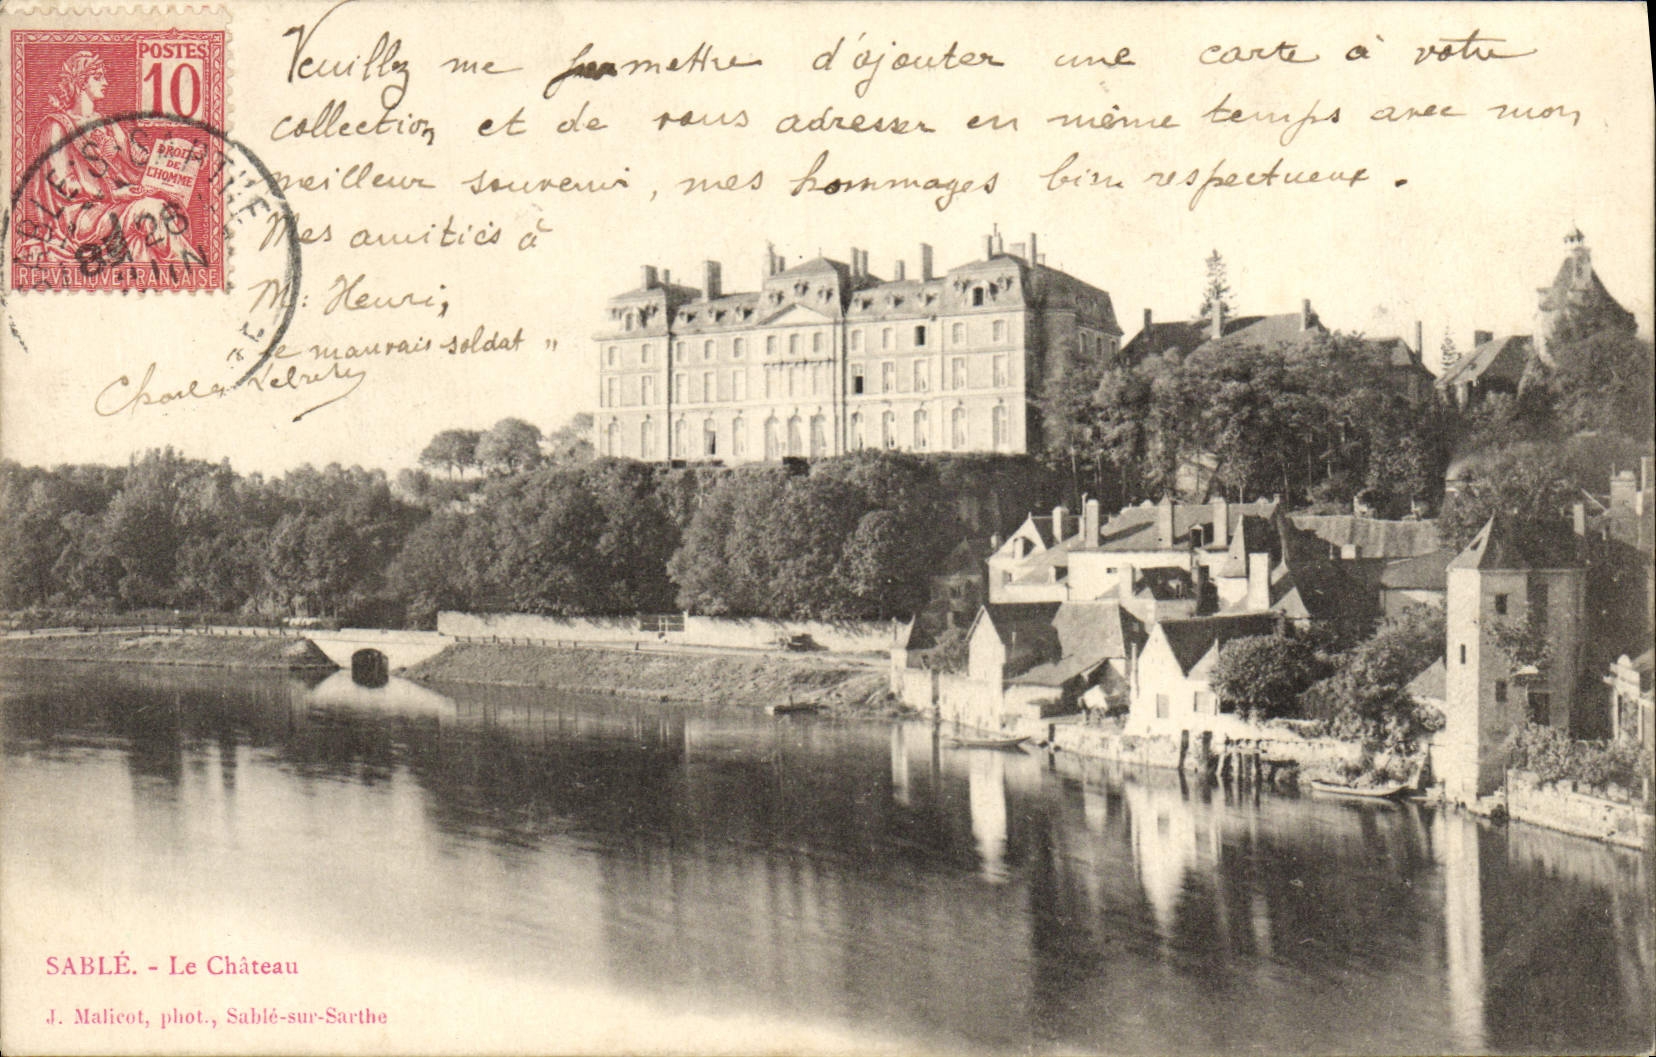 POSTES
10
DROITS
DE
L'HOMME
REPVBLIQVE FRANÇAISE
26
JUIN
Veuillez me permettre d'ajouter une carte à votre
collection et de vous adresser en même temps avec mon
meilleur souvenir, mes hommages bien respectueux.
Mes amitiés à
M: Henri,
"le mauvais soldat"
Charles
SABLÉ. - Le Château
J. Malicot, phot., Sablé-sur-Sarthe